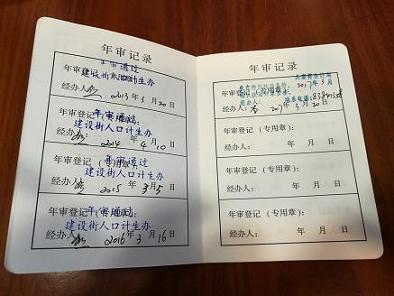 年审记录
年审通过
年审登记（专用章）：
建设街人口计生办
经办人： 2013年3月20日
年审通过
年审登记（专用章）：
建设街人口计生办
经办人： 2014年4月10日
年审通过
年审登记（专用章）：
建设街人口计生办
经办人： 2015年3月5日
年审通过
年审登记（专用章）：
建设街人口计生办
经办人： 2016年3月16日
年审记录
年审登记（专用章）：
经办人： 2017年3月20日
年审登记（专用章）：
经办人： 年 月 日
年审登记（专用章）：
经办人： 年 月 日
年审登记（专用章）：
经办人： 年 月 日